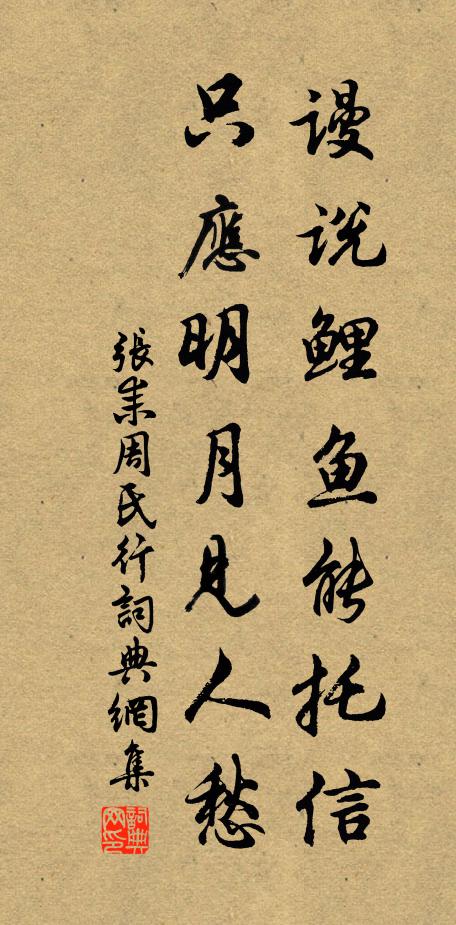 谩说鲤鱼能托信
只應明月見人愁
張耒周氏行詞典網集
詞典网印